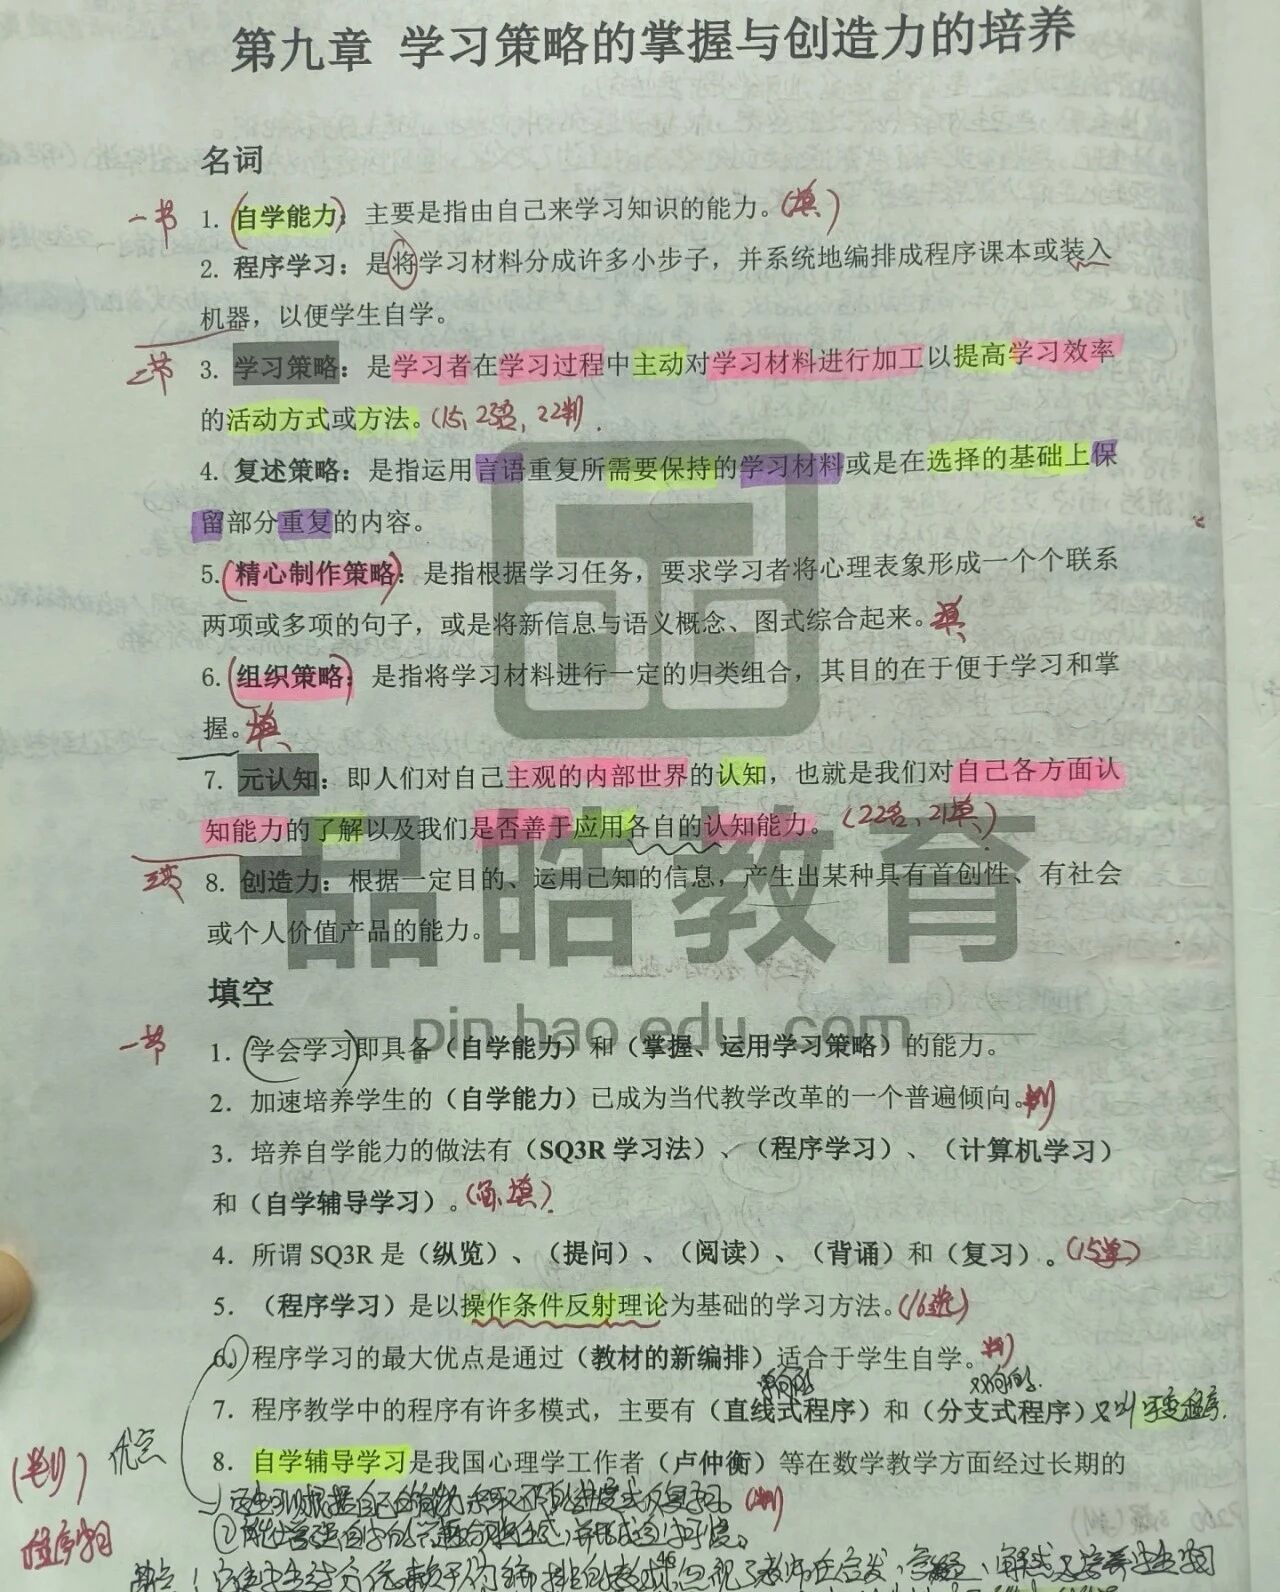 第九章 学习策略的掌握与创造力的培养
名词
一节 1. 自学能力：主要是指由自己来学习知识的能力。（填）
2. 程序学习：是将学习材料分成许多小步子，并系统地编排成程序课本或装入
机器，以便学生自学。
二节 3. 学习策略：是学习者在学习过程中主动对学习材料进行加工以提高学习效率
的活动方式或方法。
4. 复述策略：是指运用言语重复所需要保持的学习材料或是在选择的基础上保
留部分重复的内容。
5. 精心制作策略：是指根据学习任务，要求学习者将心理表象形成一个个联系
两项或多项的句子，或是将新信息与语义概念、图式综合起来。填
6. 组织策略：是指将学习材料进行一定的归类组合，其目的在于便于学习和掌
握。填
7. 元认知：即人们对自己主观的内部世界的认知，也就是我们对自己各方面认
知能力的了解以及我们是否善于应用各自的认知能力。（22名、21填）
三节 8. 创造力：根据一定目的、运用已知的信息，产生出某种具有首创性、有社会
或个人价值产品的能力。
品皓教育
填空
pin hao edu. com
一节 1. 学会学习即具备（自学能力）和（掌握、运用学习策略）的能力。
2. 加速培养学生的（自学能力）已成为当代教学改革的一个普遍倾向。判
3. 培养自学能力的做法有（SQ3R 学习法）、（程序学习）、（计算机学习）
和（自学辅导学习）。
4. 所谓 SQ3R 是（纵览）、（提问）、（阅读）、（背诵）和（复习）。
5. （程序学习）是以操作条件反射理论为基础的学习方法。（16选）
6. 程序学习的最大优点是通过（教材的新编排）适合于学生自学。判
7. 程序教学中的程序有许多模式，主要有（直线式程序）和（分支式程序）
优点
8. 自学辅导学习是我国心理学工作者（卢仲衡）等在数学教学方面经过长期的
程序学习
46